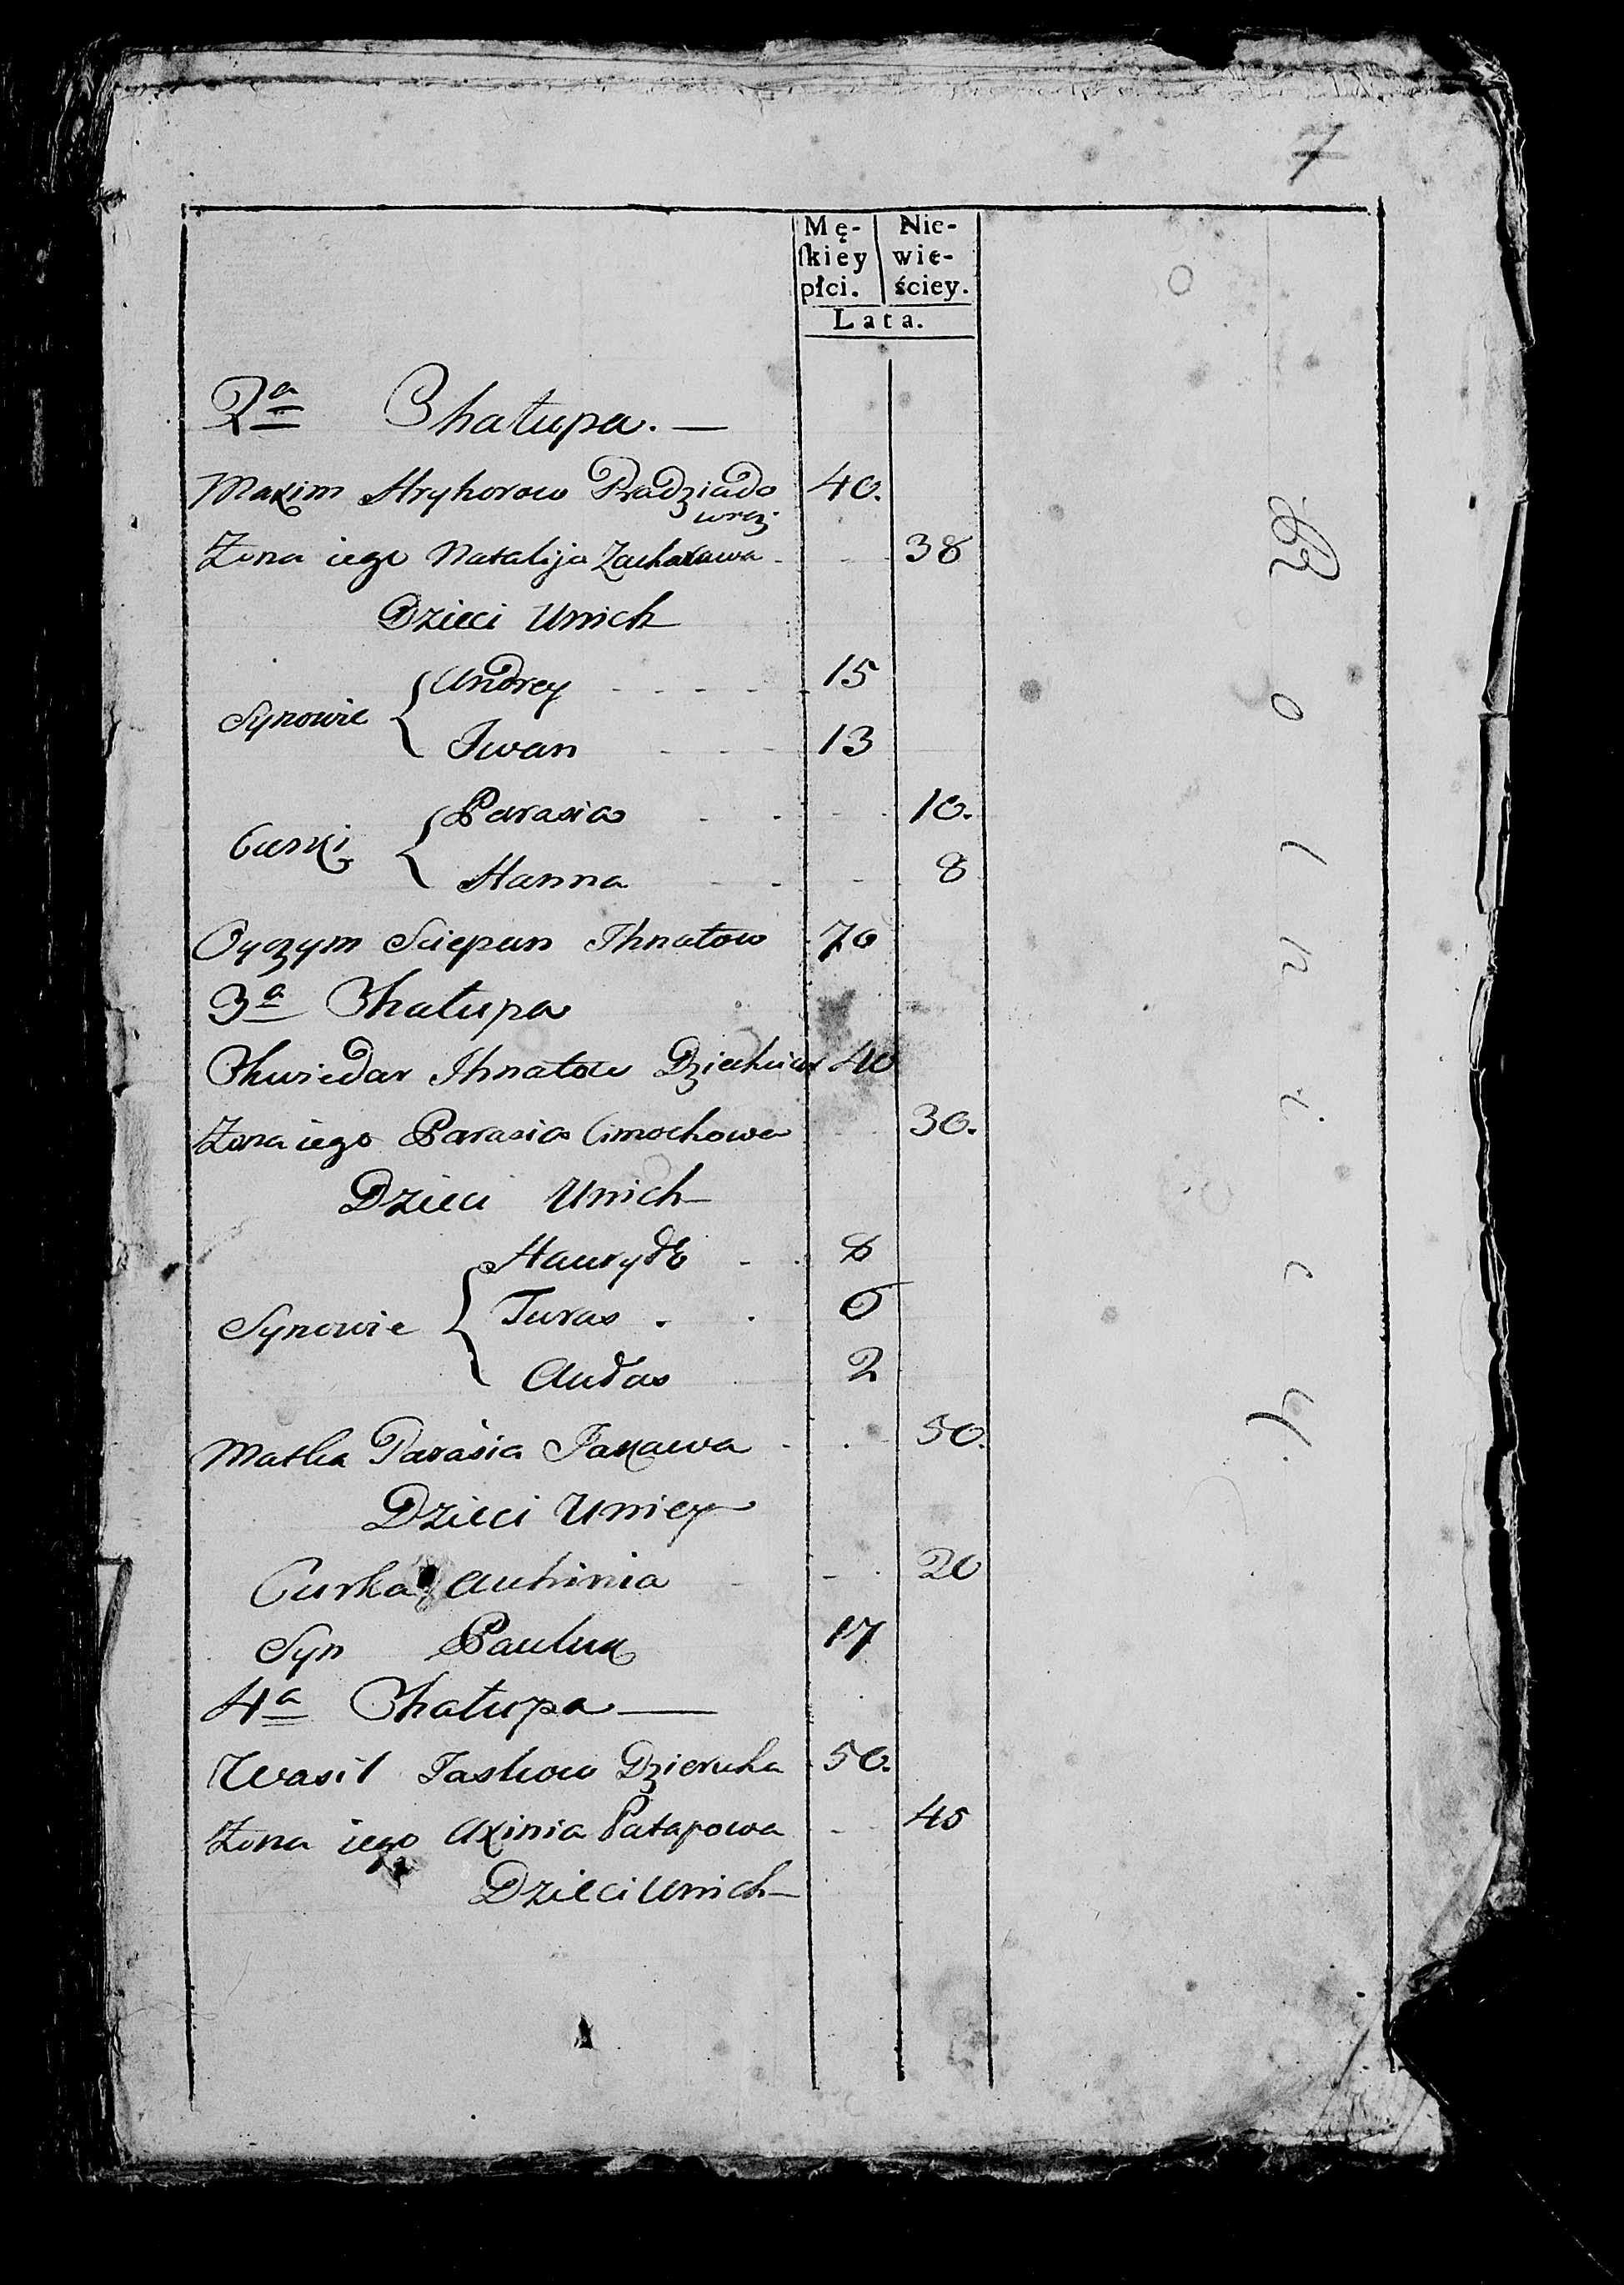 7
Mę-
skiey
płci.
Nie-
wie-
ściey.
Lata.
2a Chałupa. —
Maxim Hryhorow Pradziado 40.
wicz
Zona iego Natalija Zacharawa - 38
Dzieci Unich
Synowie { Andrey 15
Iwan 13
Curki { Parasia 10.
Hanna 8
Oyczym Sciepan Ihnatow 70
3a Chałupa
Chwiedar Ihnatow 40
Zona iego Parasia Cimochowa 30.
Dzieci Unich
Hauryło 8
Synowie { Taras 6
Audas 2
Matka Parasia Jakawa 50.
Dzieci Uniey
Curka Auhinia 20
Syn Pauluk 17
4a Chałupa —
Wasil Jaskow Dzieruha 50.
Zona iego Axinia Patapowa 45
Dzieci Unich
Rolnicy.